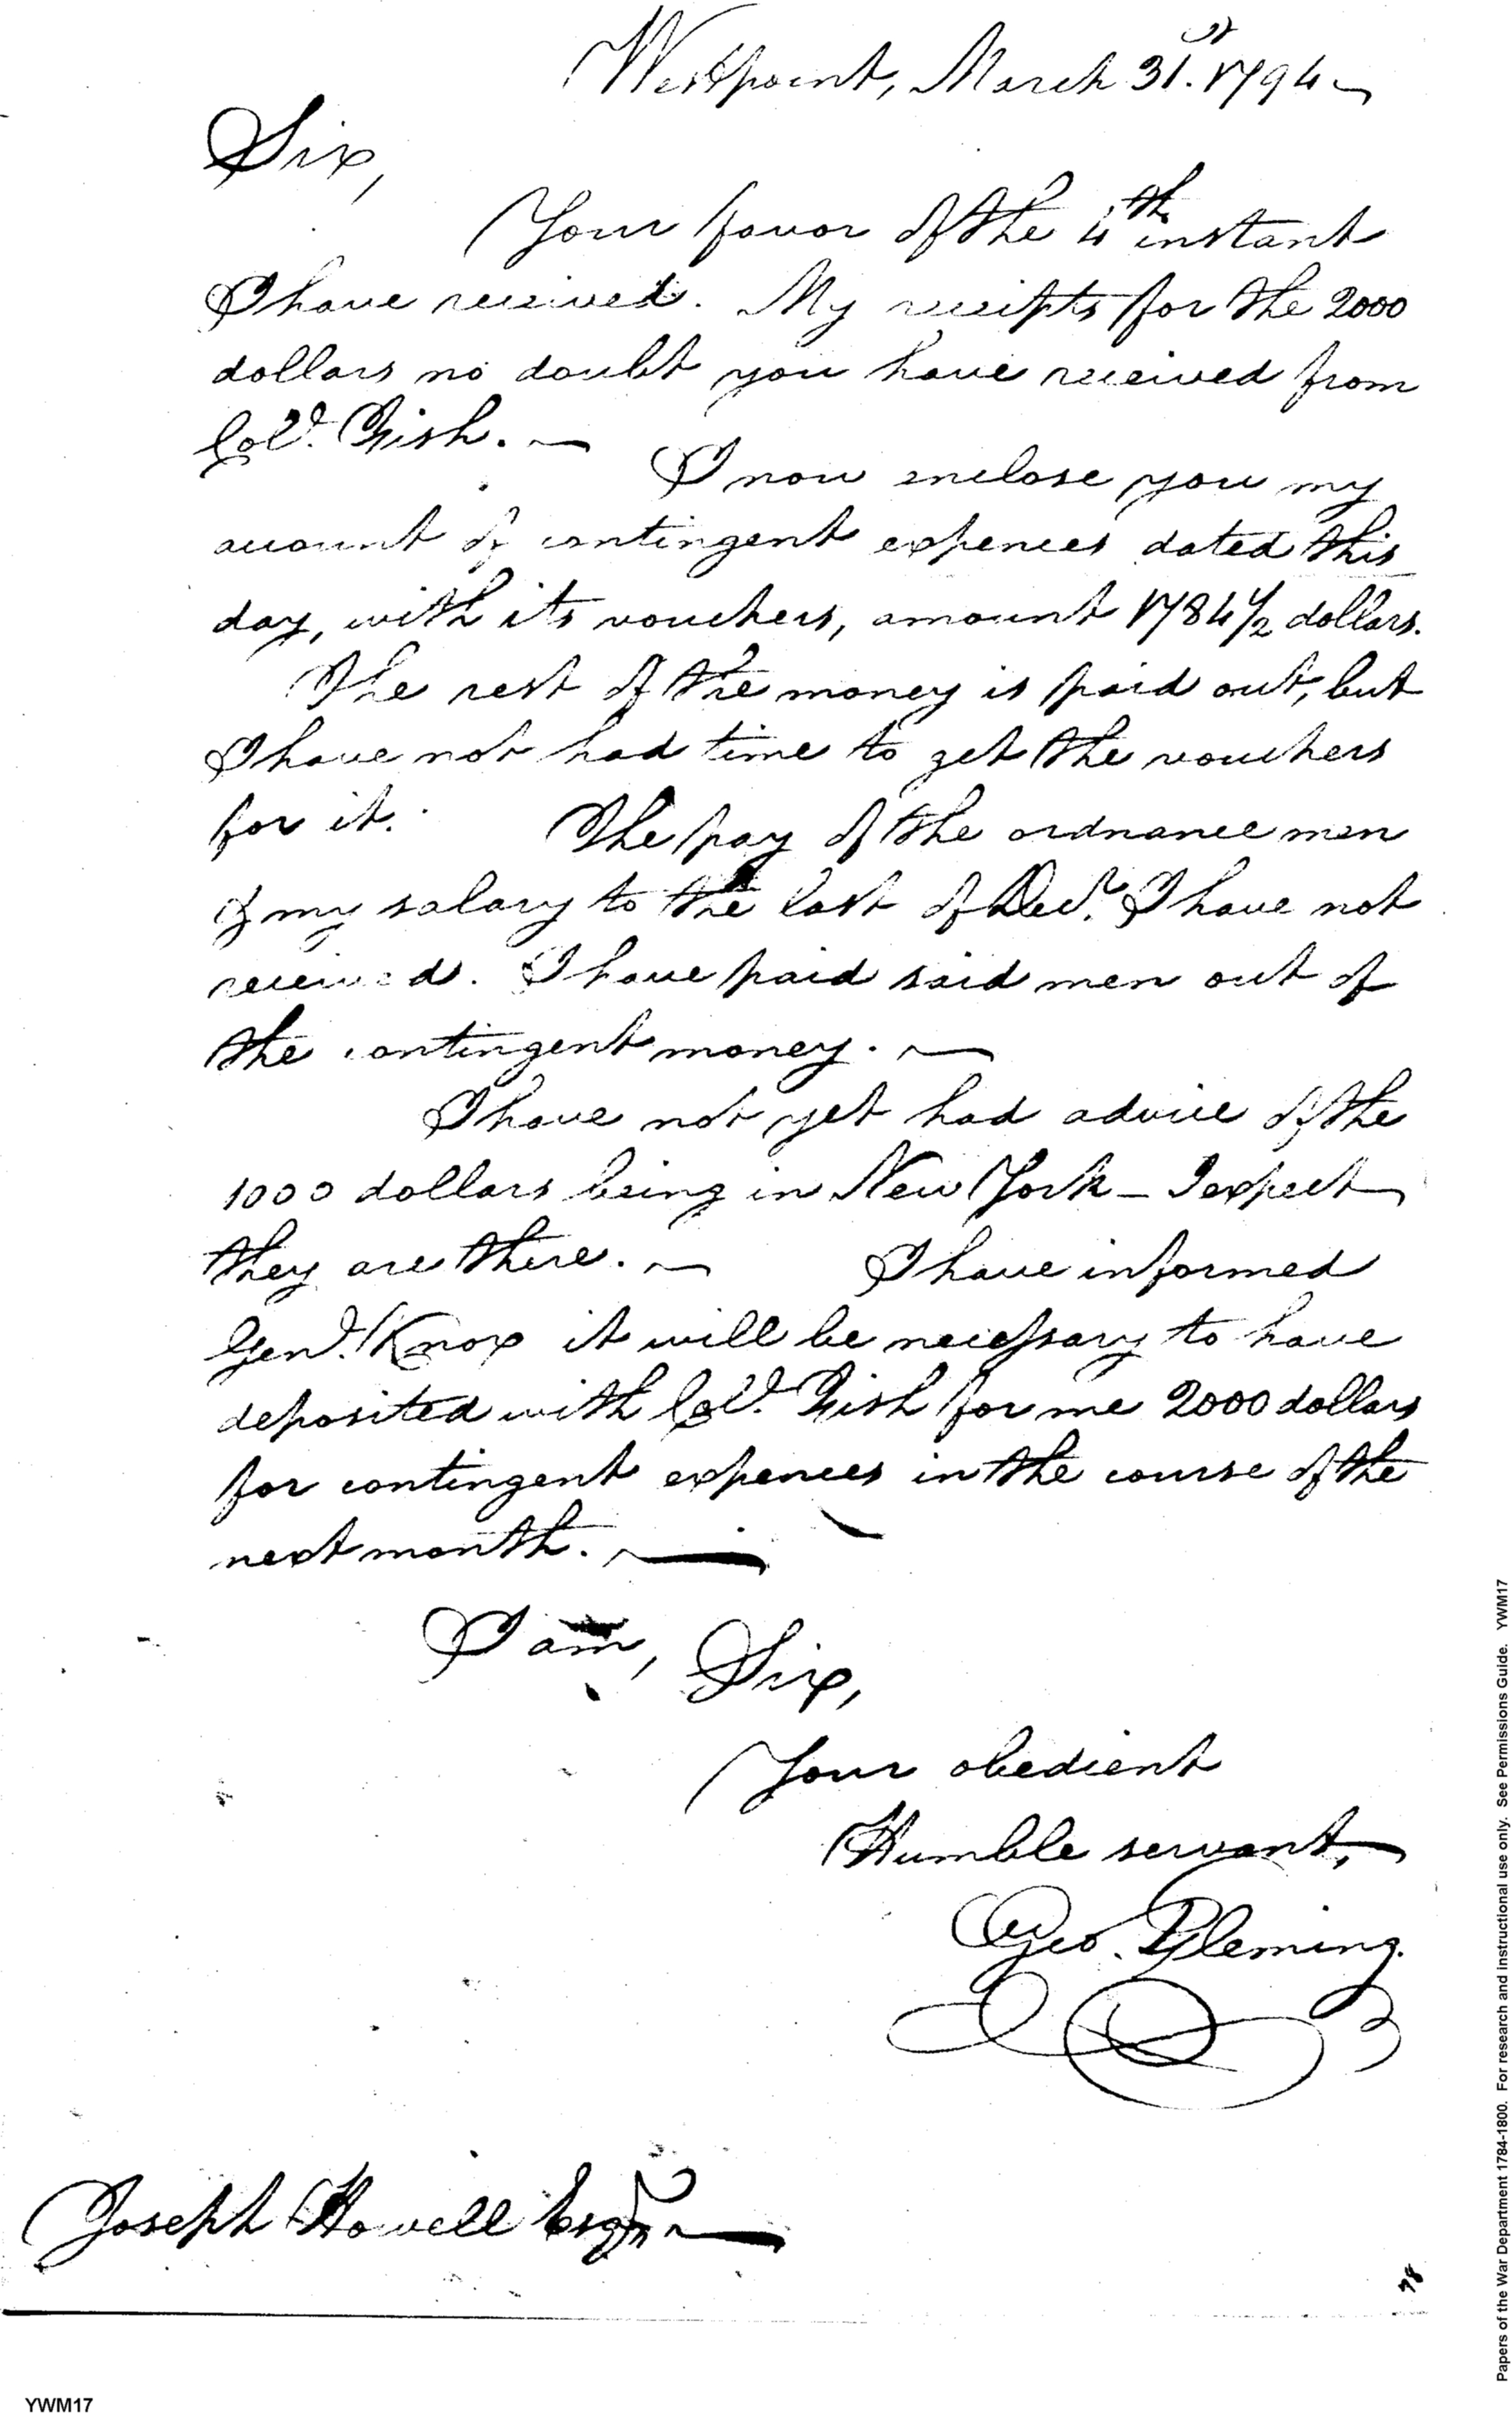 Westpoint, March 31st. 1794
Sir,
Your favor of the 4th instant
I have received. My receipts for the 2000
dollars no doubt you have received from
Col. Fish.
I now enclose you my
account of contingent expences dated this
day, with its vouchers, amount 1784 1/2 dollars.
The rest of the money is paid out, but
I have not had time to get the vouchers
for it. The pay of the ordnance men
& my salary to the last of Decr. I have not
received. I have paid said men out of
the contingent money.
I have not yet had advice of the
1000 dollars being in New York - I expect
they are there. I have informed
Genl. Knox it will be necessary to have
deposited with Col. Fish for me 2000 dollars
for contingent expences in the course of the
next month.
I am, Sir,
Your obedient
Humble servant,
Geo. Fleming.
Joseph Howell Esqr.
78
YWM17
Papers of the War Department 1784-1800. For research and instructional use only. See Permissions Guide. YWM17